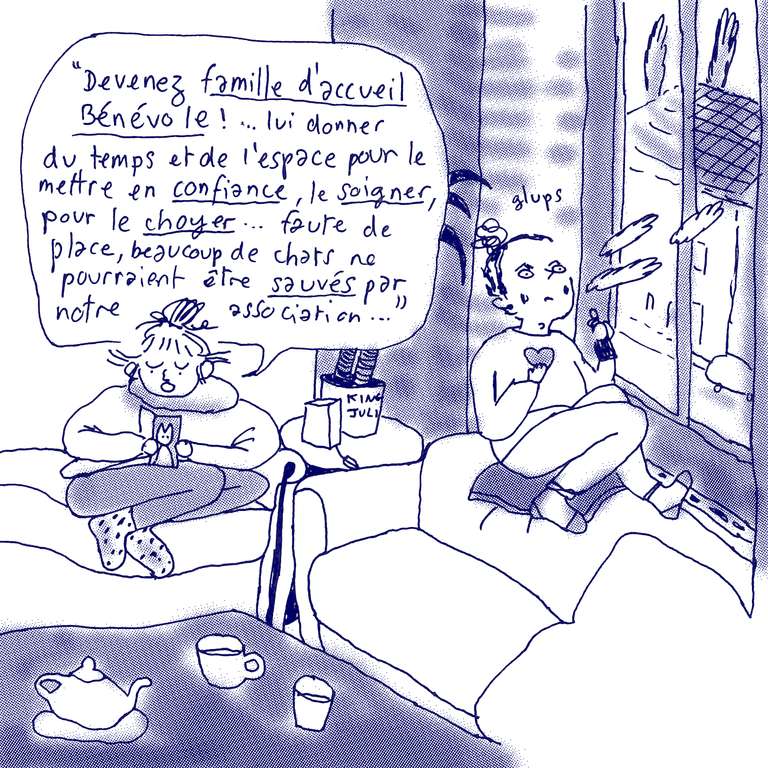 "Devenez famille d'accueil
Bénévole ! ... lui donner
du temps et de l'espace pour le
mettre en confiance, le soigner,
pour le choyer ... faute de
place, beaucoup de chats ne
pourraient être sauvés par
notre association ..."
glups
KING
JULI